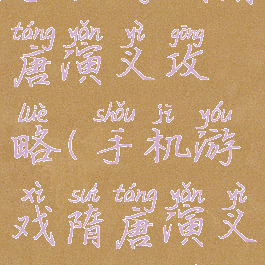 táng yǎn yì gōng
唐演义攻
lüè shǒu jī yóu
略(手机游
xì suí táng yǎn yì
戏隋唐演义